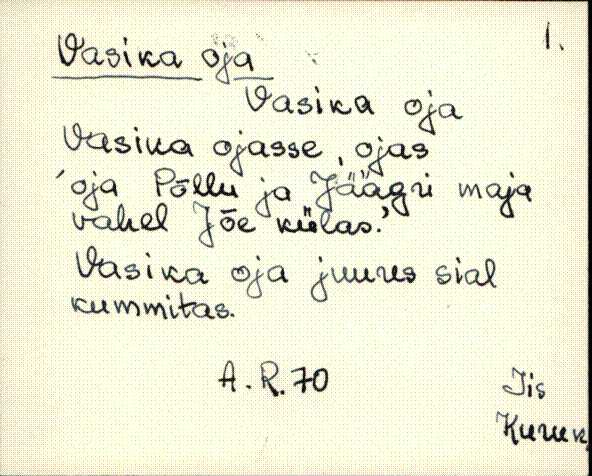 1.
Vasika oja
Vasika oja
Vasika ojasse, ojas
'oja Põllu ja Jäägri maja
vahel Jõe külas.'
Vasika oja juures sial
kummitas.
A.R. 70
Jis
Kuruk,